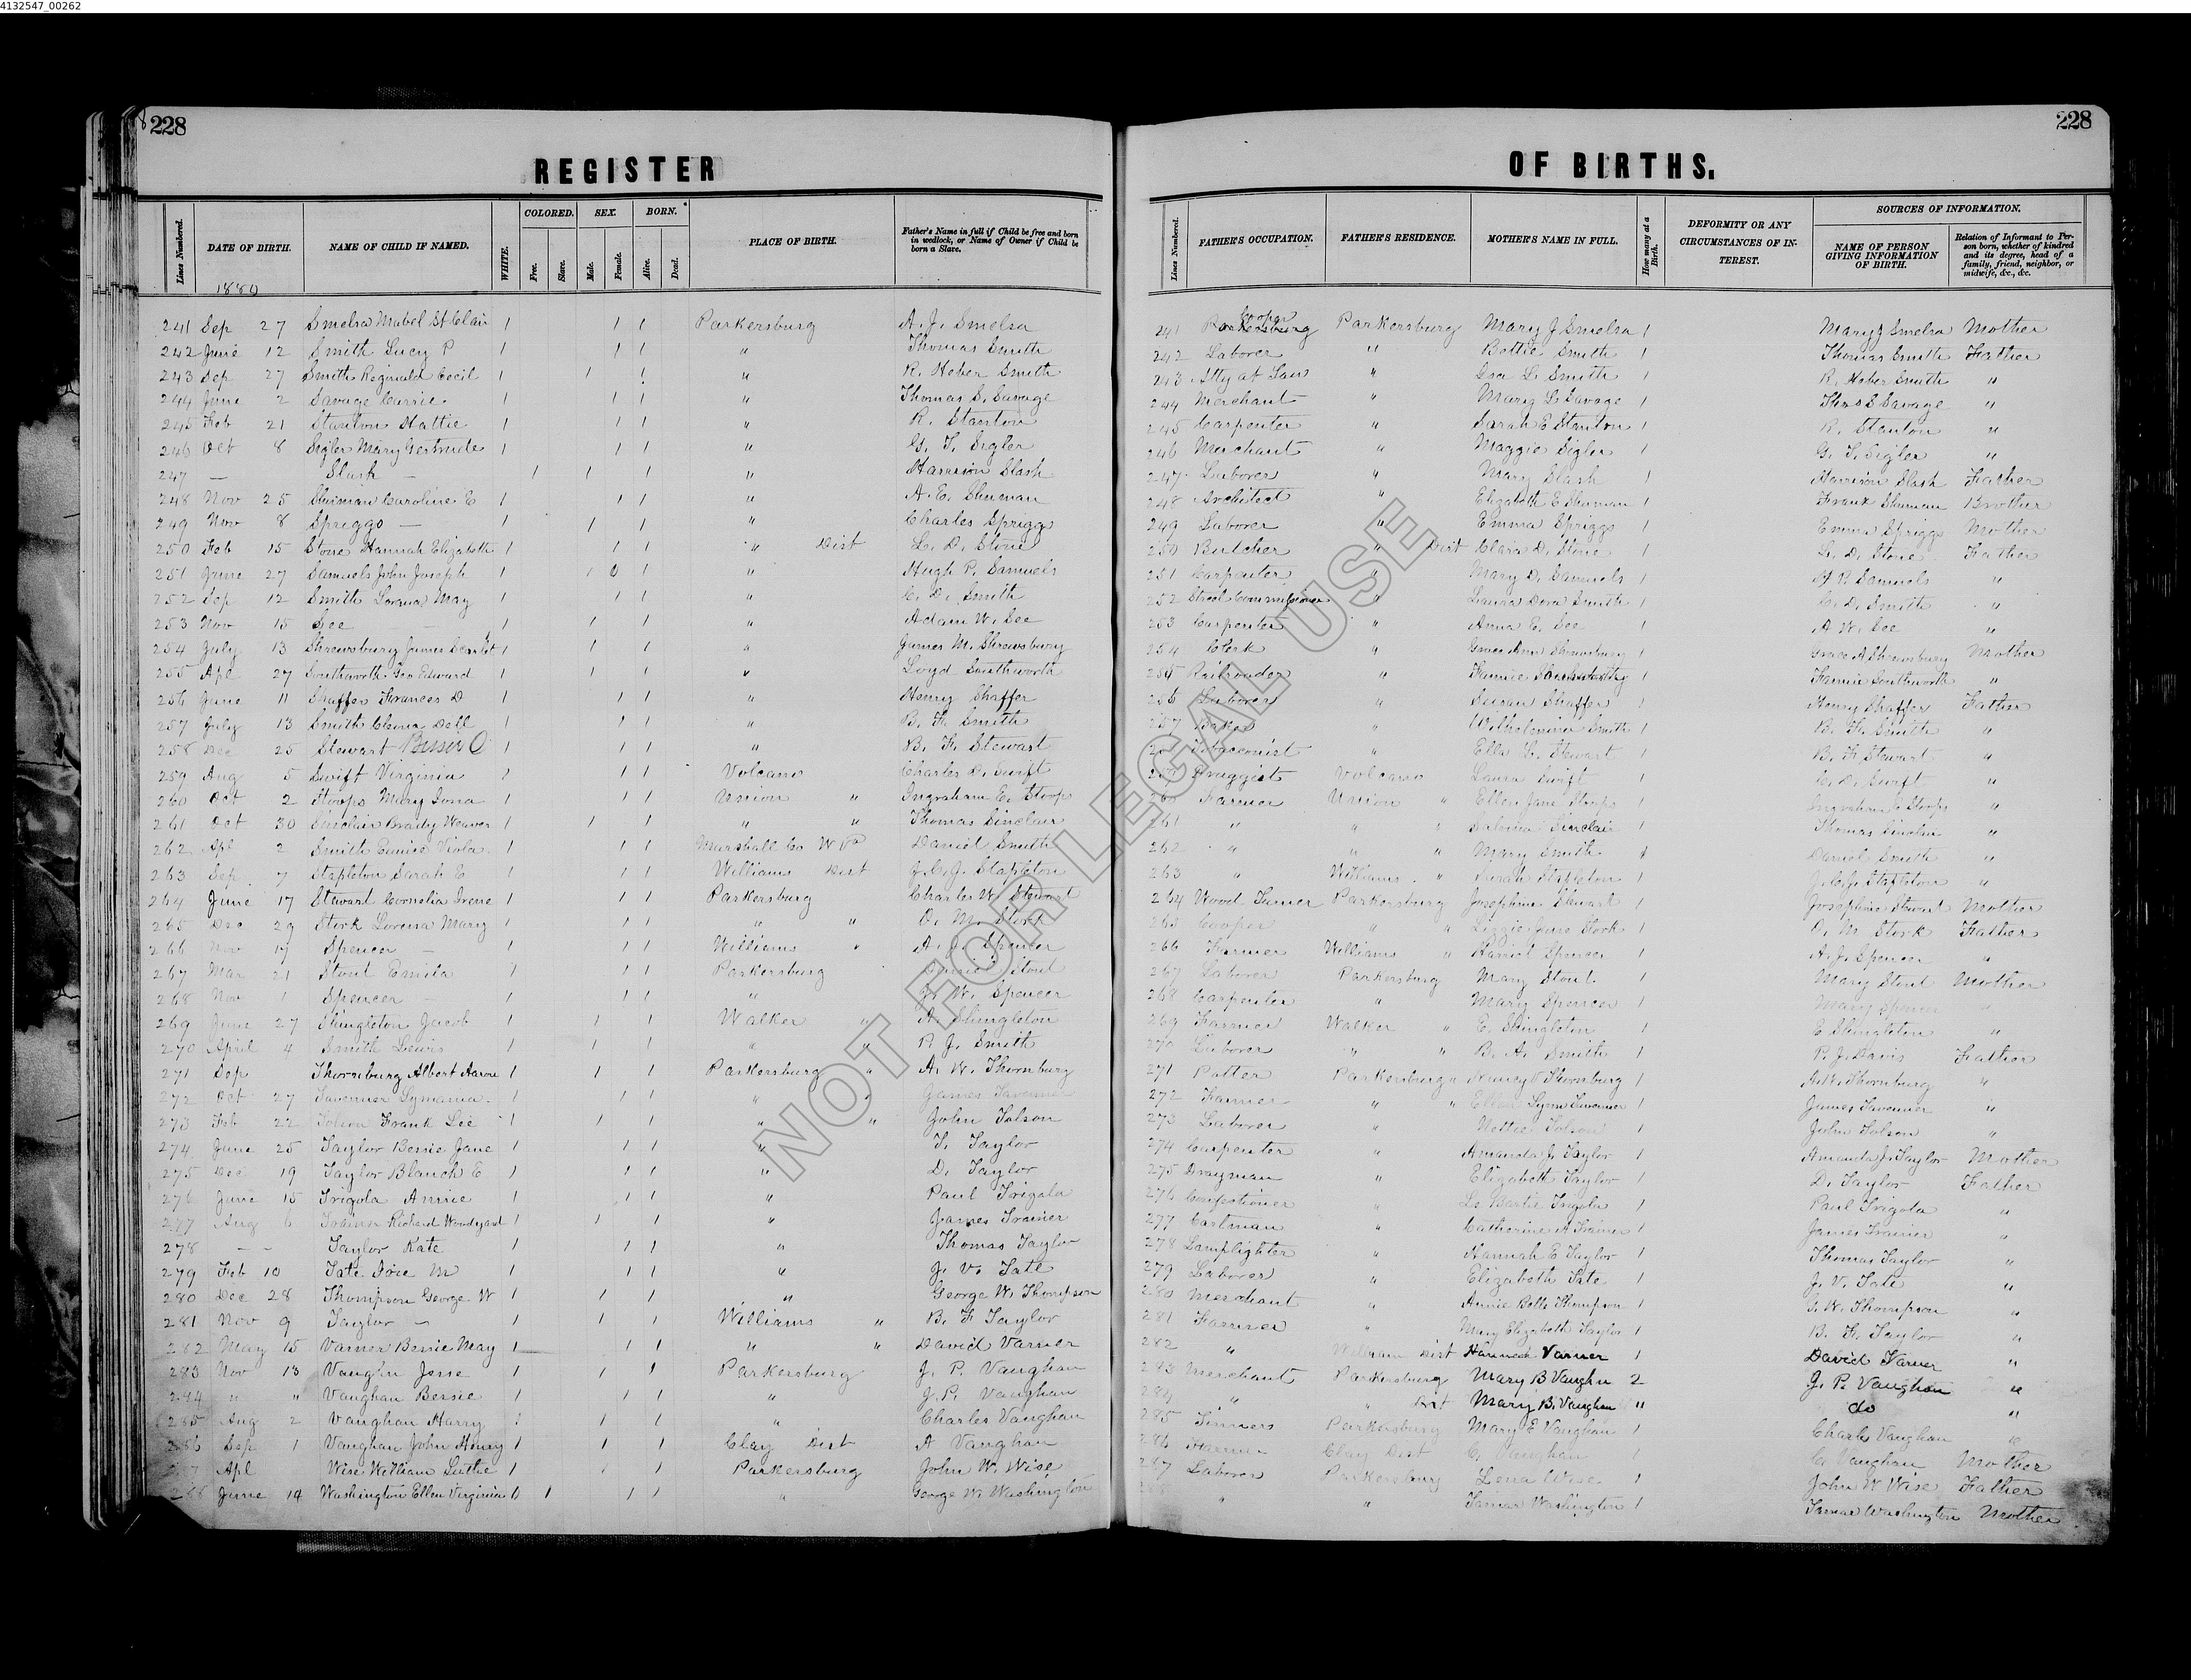 4132547_00262
228
REGISTER
Lines Numbered. DATE OF BIRTH. NAME OF CHILD IF NAMED. WHITE. COLORED. Free. Slave. SEX. Male. Female. BORN. Alive. Dead. PLACE OF BIRTH. Father's Name in full if Child be free and born in wedlock, or Name of Owner if Child be born a Slave.
1880
241 Sep 27 Smelsa Mabel St Clair 1 1 1 Parkersburg A. J. Smelsa
242 June 12 Smith Lucy P 1 1 1 " Thomas Smith
243 Sep 27 Smith Reginald Cecil 1 1 1 " R. Heber Smith
244 June 2 Savage Carrie 1 1 1 " Thomas S. Savage
245 Feb 21 Stanton Hattie 1 1 1 " R. Stanton
246 Oct 8 Sigler Mary Gertrude 1 1 1 " G. T. Sigler
247 — Slash — 1 1 1 " Harrison Slash
248 Nov 25 Shuman Caroline E 1 1 1 " A. E. Shuman
249 Nov 8 Spriggs — 1 1 1 " Charles Spriggs
250 Feb 15 Stone Hannah Elizabeth 1 1 1 " Dist L. D. Stone
251 June 27 Samuels John Joseph 1 1 0 1 " Hugh P. Samuels
252 Sep 12 Smith May 1 1 1 " C. D. Smith
253 Nov 15 See — 1 1 1 " Adam W. See
254 July 13 Shrewsbury James 1 1 1 " James M. Shrewsbury
255 Apl 27 Southworth Geo Edward 1 1 1 " Loyd Southworth
256 June 11 Shaffer Frances D 1 1 1 " Henry Shaffer
257 July 13 Smith Dell 1 1 1 " B. F. Smith
258 Dec 25 Stewart Bessie C 1 1 1 " B. F. Stewart
259 Aug 5 Swift Virginia 1 1 1 Volcano Charles D. Swift
260 Oct 2 Stoops Mary Iona 1 1 1 Union " Ingraham E. Stoops
261 Oct 30 Sinclair Brady Weaver 1 1 1 " " Thomas Sinclair
262 Apl 2 Smith Eunice Viola 1 1 1 Marshall Co W Va Daniel Smith
263 Sep 7 Stapleton Sarah E 1 1 1 Williams Dist J. C. J. Stapleton
264 June 17 Stewart Cornelia Irene 1 1 1 Parkersburg Charles W. Stewart
265 Dec 29 Stork Lorena Mary 1 1 1 " " O. M. Stork
266 Nov 17 Spencer — 1 1 1 Williams " A. J. Spencer
267 Mar 21 Stout Emila 1 1 1 Parkersburg Stout
268 Nov 1 Spencer — 1 1 1 " J. W. Spencer
269 June 27 Slingleton Jacob 1 1 1 Walker " A. Slingleton
270 April 4 Smith Lewis 1 1 1 " " P. J. Smith
271 Sep Thornburg Albert Aaron 1 1 1 Parkersburg " A. W. Thornburg
272 Oct 27 Tavenner Symaria 1 1 1 " " James Tavenner
273 Feb 22 Tolson Frank Lee 1 1 1 " " John Tolson
274 June 25 Taylor Bessie Jane 1 1 1 " T. Taylor
275 Dec 19 Taylor Blanch E 1 1 1 " D. Taylor
276 June 15 Trigola Annie 1 1 1 " Paul Trigola
277 Aug 6 Trainer Richard Woodyard 1 1 1 " James Trainer
278 — — Taylor Kate 1 1 1 " Thomas Taylor
279 Feb 10 Tate M 1 1 1 " J. V. Tate
280 Dec 28 Thompson George W 1 1 1 " George W. Thompson
281 Nov 9 Taylor — 1 1 1 Williams " B. F. Taylor
282 May 15 Varner Bessie May 1 1 1 " " David Varner
283 Nov 13 Vaughn Jesse 1 1 1 Parkersburg J. P. Vaughan
284 " " Vaughan Bessie 1 1 1 " J. P. Vaughan
285 Aug 2 Vaughan Harry 1 1 1 " Charles Vaughan
286 Sep 1 Vaughan John Henry 1 1 1 Clay Dist A Vaughan
287 Apl Wise William Luttie 1 1 1 Parkersburg John W. Wise
288 June 14 Washington Ellen Virginia 1 1 1 " George W. Washington
228
OF BIRTHS.
Lines Numbered. FATHER'S OCCUPATION. FATHER'S RESIDENCE. MOTHER'S NAME IN FULL. How many at a Birth. DEFORMITY OR ANY CIRCUMSTANCES OF INTEREST. SOURCES OF INFORMATION. NAME OF PERSON GIVING INFORMATION OF BIRTH. Relation of Informant to Person born, whether of kindred and its degree, head of a family, friend, neighbor, or midwife, &c., &c.
241 Cooper Parkersburg Parkersburg Mary J Smelsa 1 Mary J Smelsa Mother
242 Laborer " Bettie Smith 1 Thomas Smith Father
243 Atty at Law " L. Smith 1 R. Heber Smith "
244 Merchant " Mary L Savage 1 Thos S Savage "
245 Carpenter " Sarah E Stanton 1 R. Stanton "
246 Merchant " Maggie Sigler 1 G. T. Sigler "
247 Laborer " Mary Slash 1 Harrison Slash Father
248 Architect " Elizabeth E Shuman 1 Frank Shuman Brother
249 Laborer " Emma Spriggs 1 Emma Spriggs Mother
250 Butcher " Dist Clara D. Stone 1 L. D. Stone Father
251 Carpenter " Mary D. Samuels 1 H P. Samuels "
252 Street Commissioner " Laura Dora Smith 1 C. D. Smith "
253 Carpenter " Anna E. See 1 A W. See "
254 Clerk " Grace Ann Shrewsbury 1 Grace A Shrewsbury Mother
255 Railroader " Fannie 1 Fannie Southworth "
256 Laborer " Susan Shaffer 1 Henry Shaffer Father
257 Baker " Wilhelmina Smith 1 B. F. Smith "
258 Tobacconist " Ella L. Stewart 1 B. F Stewart "
259 Druggist Volcano Laura Swift 1 C. D. Swift "
260 Farmer Union " Ellen Jane Stoops 1 Ingraham E Stoops "
261 " " " Sinclair 1 Thomas Sinclair "
262 " " " Mary Smith 1 Daniel Smith "
263 " Williams " Sarah Stapleton 1 J. C. J. Stapleton "
264 Wood Turner Parkersburg Josephine Stewart 1 Josephine Stewart Mother
265 Cooper " " Lizzie Jane Stork 1 O. M Stork Father
266 Farmer Williams " Harriet Spencer 1 A. J. Spencer "
267 Laborer Parkersburg Mary Stout 1 Mary Stout Mother
268 Carpenter " Mary Spencer 1 Mary Spencer "
269 Farmer Walker " E. Slingleton 1 E Slingleton "
270 Laborer " " B. A. Smith 1 P. J. Davis Father
271 Potter Parkersburg " Nancy Thornburg 1 A. W. Thornburg "
272 Farmer " " Ellen Lynn Tavenner 1 James Tavenner "
273 Laborer " Nettie Tolson 1 John Tolson "
274 Carpenter " Amanda J. Taylor 1 Amanda J. Taylor Mother
275 Drayman " Elizabeth Taylor 1 D. Taylor Father
276 Confectioner " Trigola 1 Paul Trigola "
277 Cartman " Catherine A Trainer 1 James Trainer "
278 Lamplighter " Hannah E Taylor 1 Thomas Taylor "
279 Laborer " Elizabeth Tate 1 J. V. Tate "
280 Merchant " Annie Belle Thompson 1 G. W. Thompson "
281 Farmer " Mary Elizabeth Taylor 1 B. F. Taylor "
282 " William Dist Hannah Varner 1 David Varner "
283 Merchant Parkersburg Mary B Vaughn 2 J. P. Vaughan "
284 " " Dist Mary B. Vaughan " do "
285 Tinners Parkersburg Mary E Vaughan 1 Charles Vaughan "
286 Farmer Clay Dist C. Vaughan 1 C. Vaughan Mother
287 Laborer Parkersburg Lena Wise 1 John W Wise Father
288 " " Tamar Washington 1 Tamar Washington Mother
NOT FOR LEGAL USE